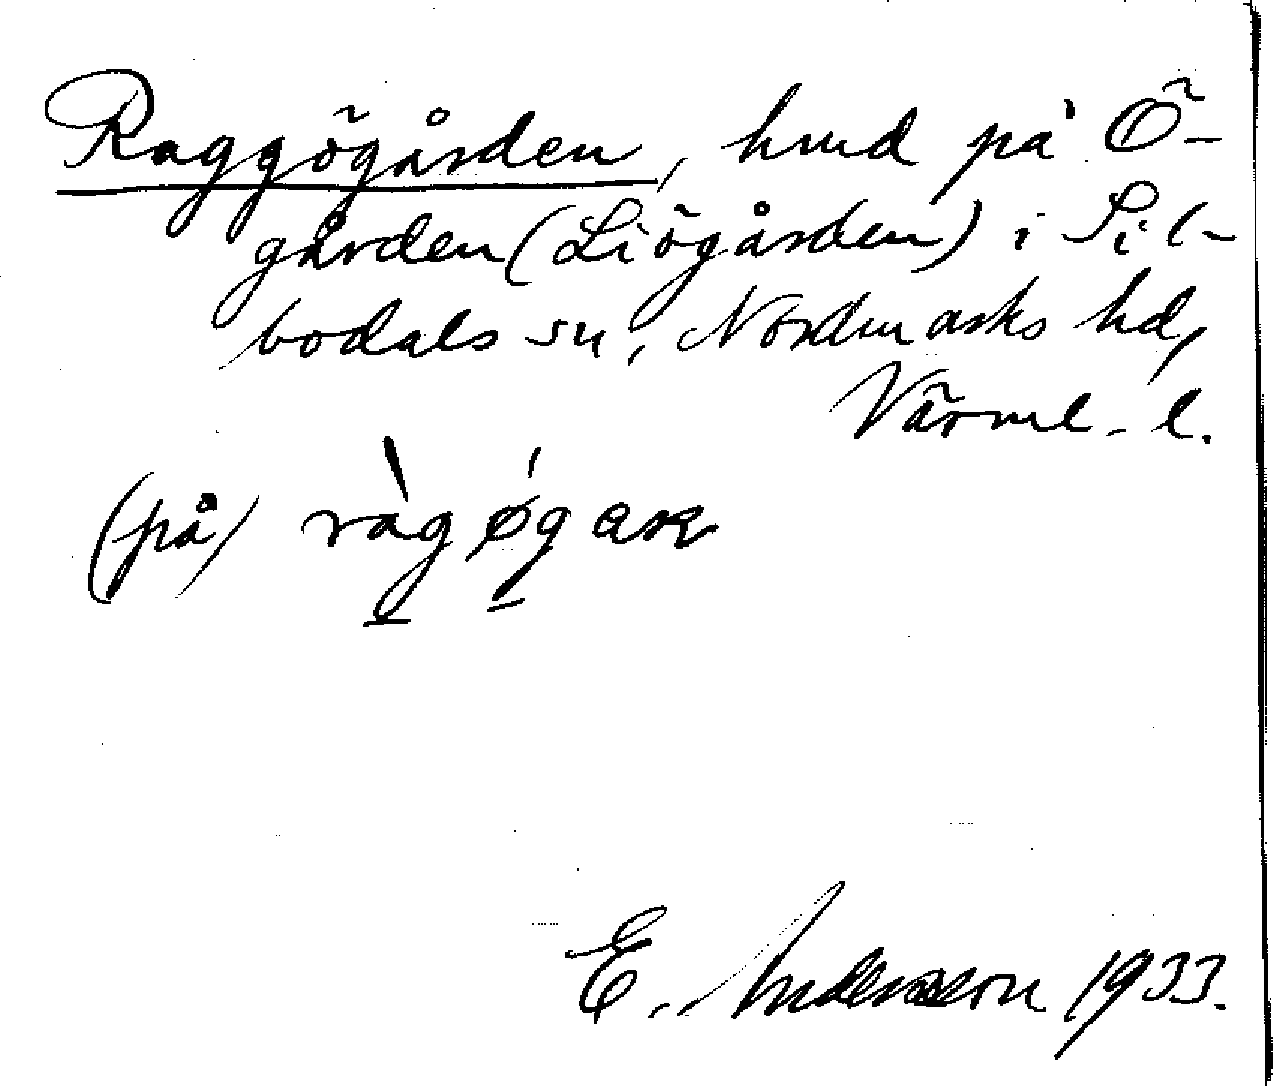 Raggögården, hmd på Ö-
gården (Liögården) i Sil-
bodals sn, Nordmarks hd,
Värml. l.
(på) ràgǿgaɳ
E. Andersson 1933.